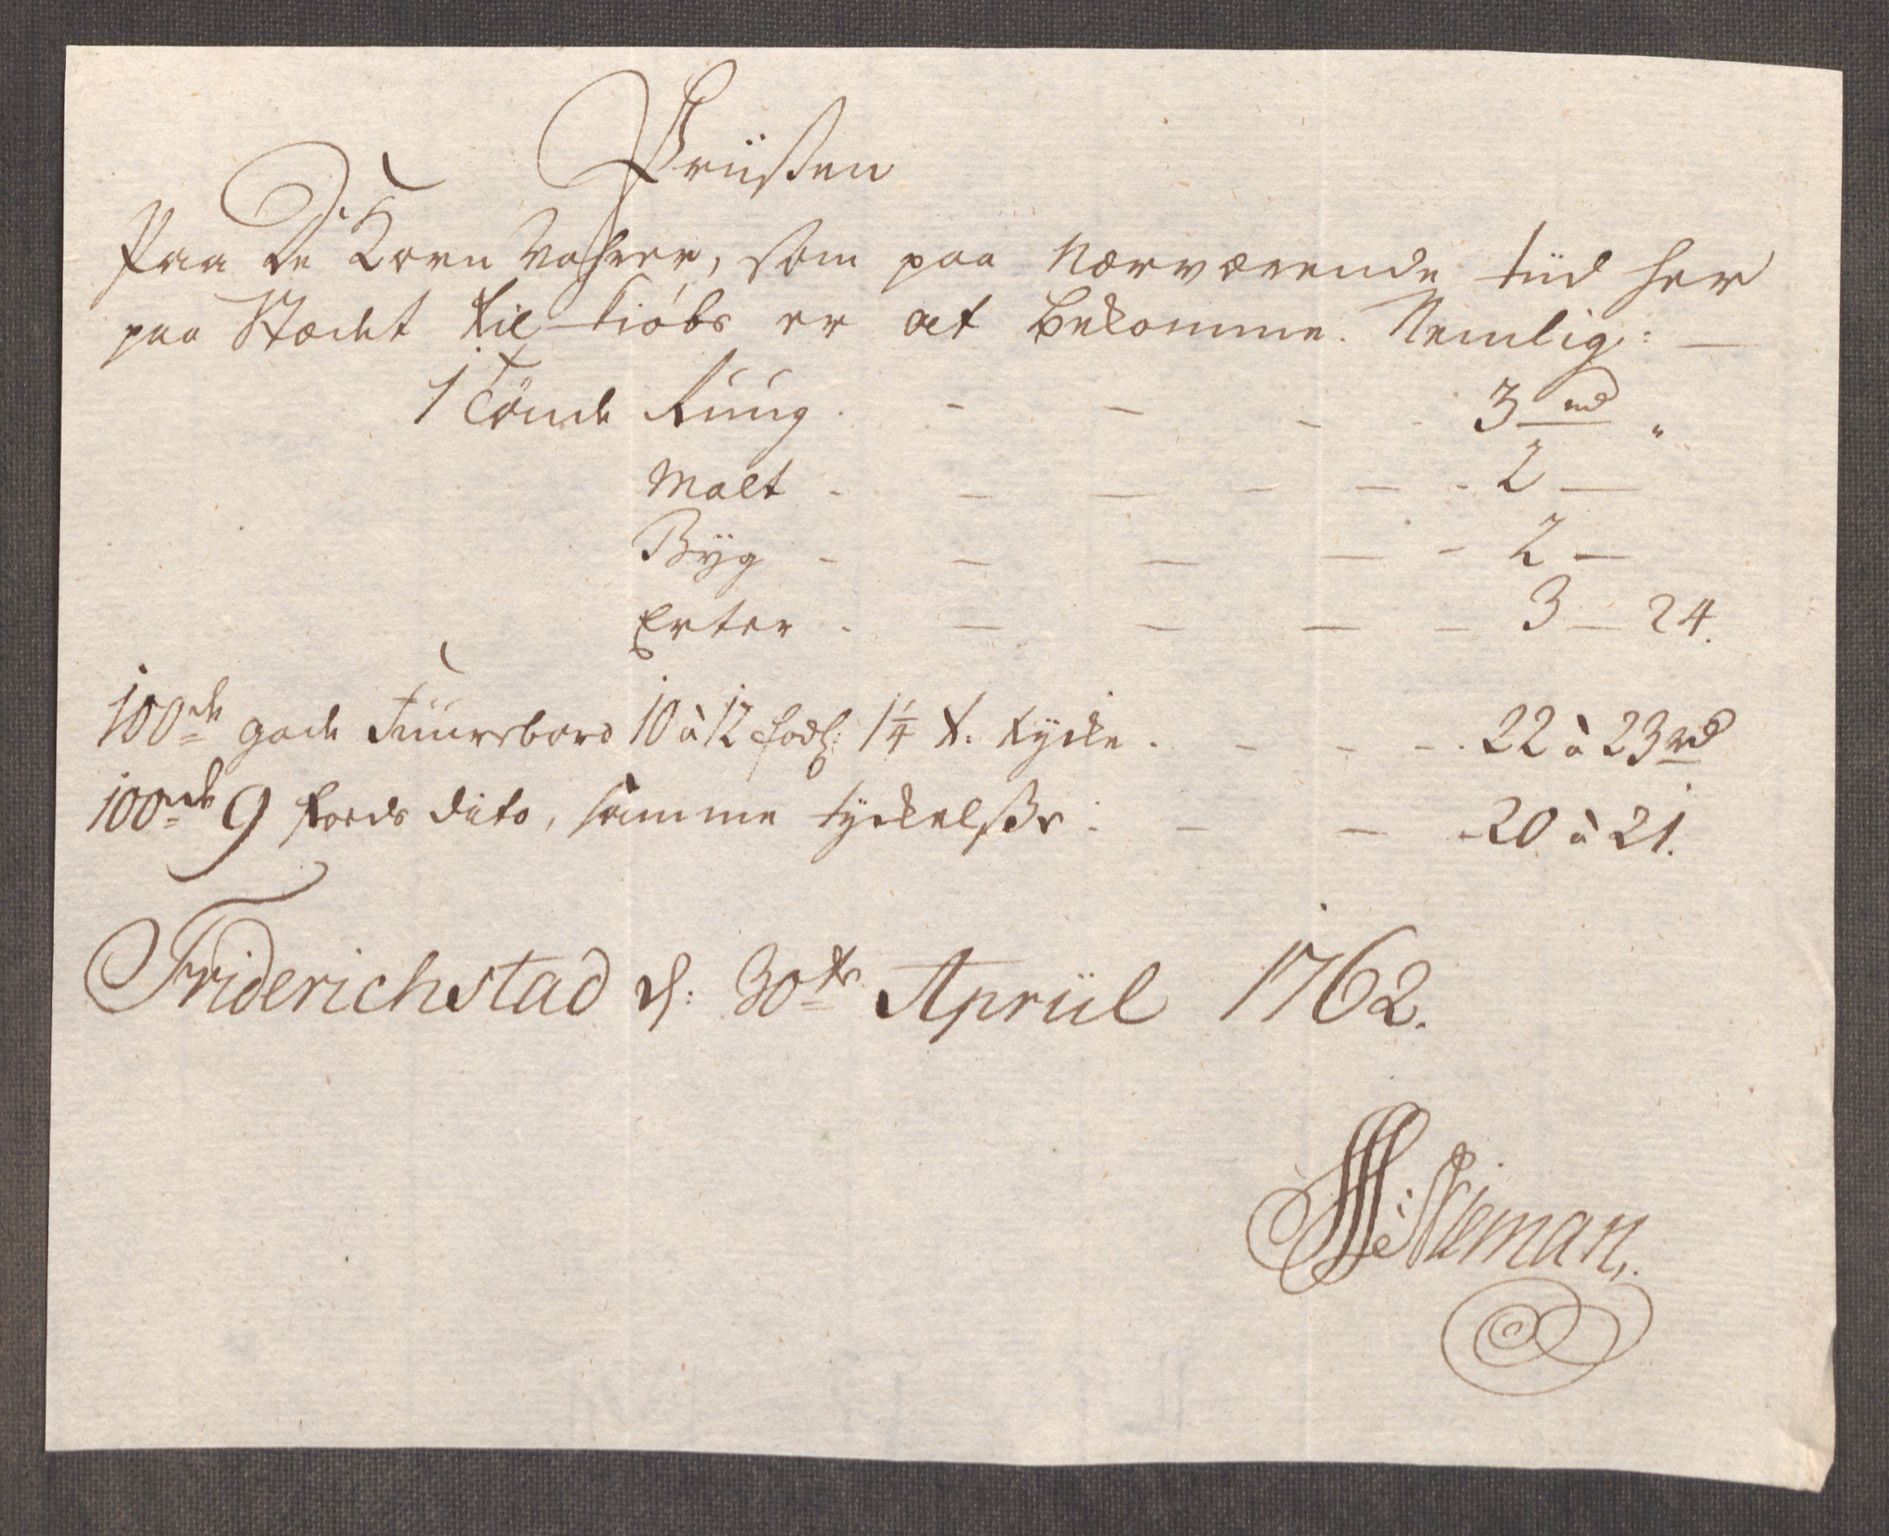 Priißen
Paa De Korn Vahrer, som paa Nærværende tiid her
paa Stædet til kiøbs er at bekomme. Nemlig: —
1 Tønde Ruug . - - - - 3 rd "
Malt . - - - - - 2 —
Byg - - - - - 2 —
Erter . - - - - 3 — 24.
100de gode Fuurebord 10 à 12 fods: 1¼ t. tycke . - - - . 22 à 23 rd
100de 9 foeds dito, samme tyckelße . - - - 20 à 21.
Friderichstad d: 30te Apriil 1762.
Nieman